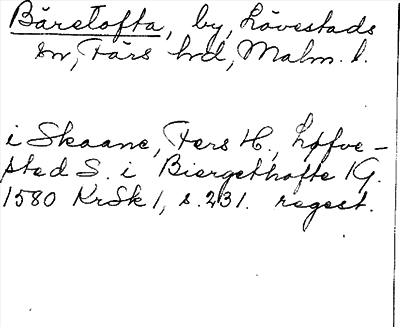 Bäretofta, by, Lövestads
sn, Färs hd, Malm. l.
i Skaane, Fers H., Løfve-
sted S. i Biergethofte 1 G.
1580 KrSk 1, s. 231. regest.